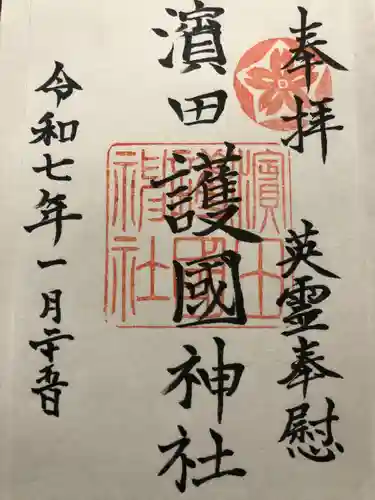 奉拝 英霊奉慰
濱田護國神社
令和七年一月二十五日
濱田護國神社